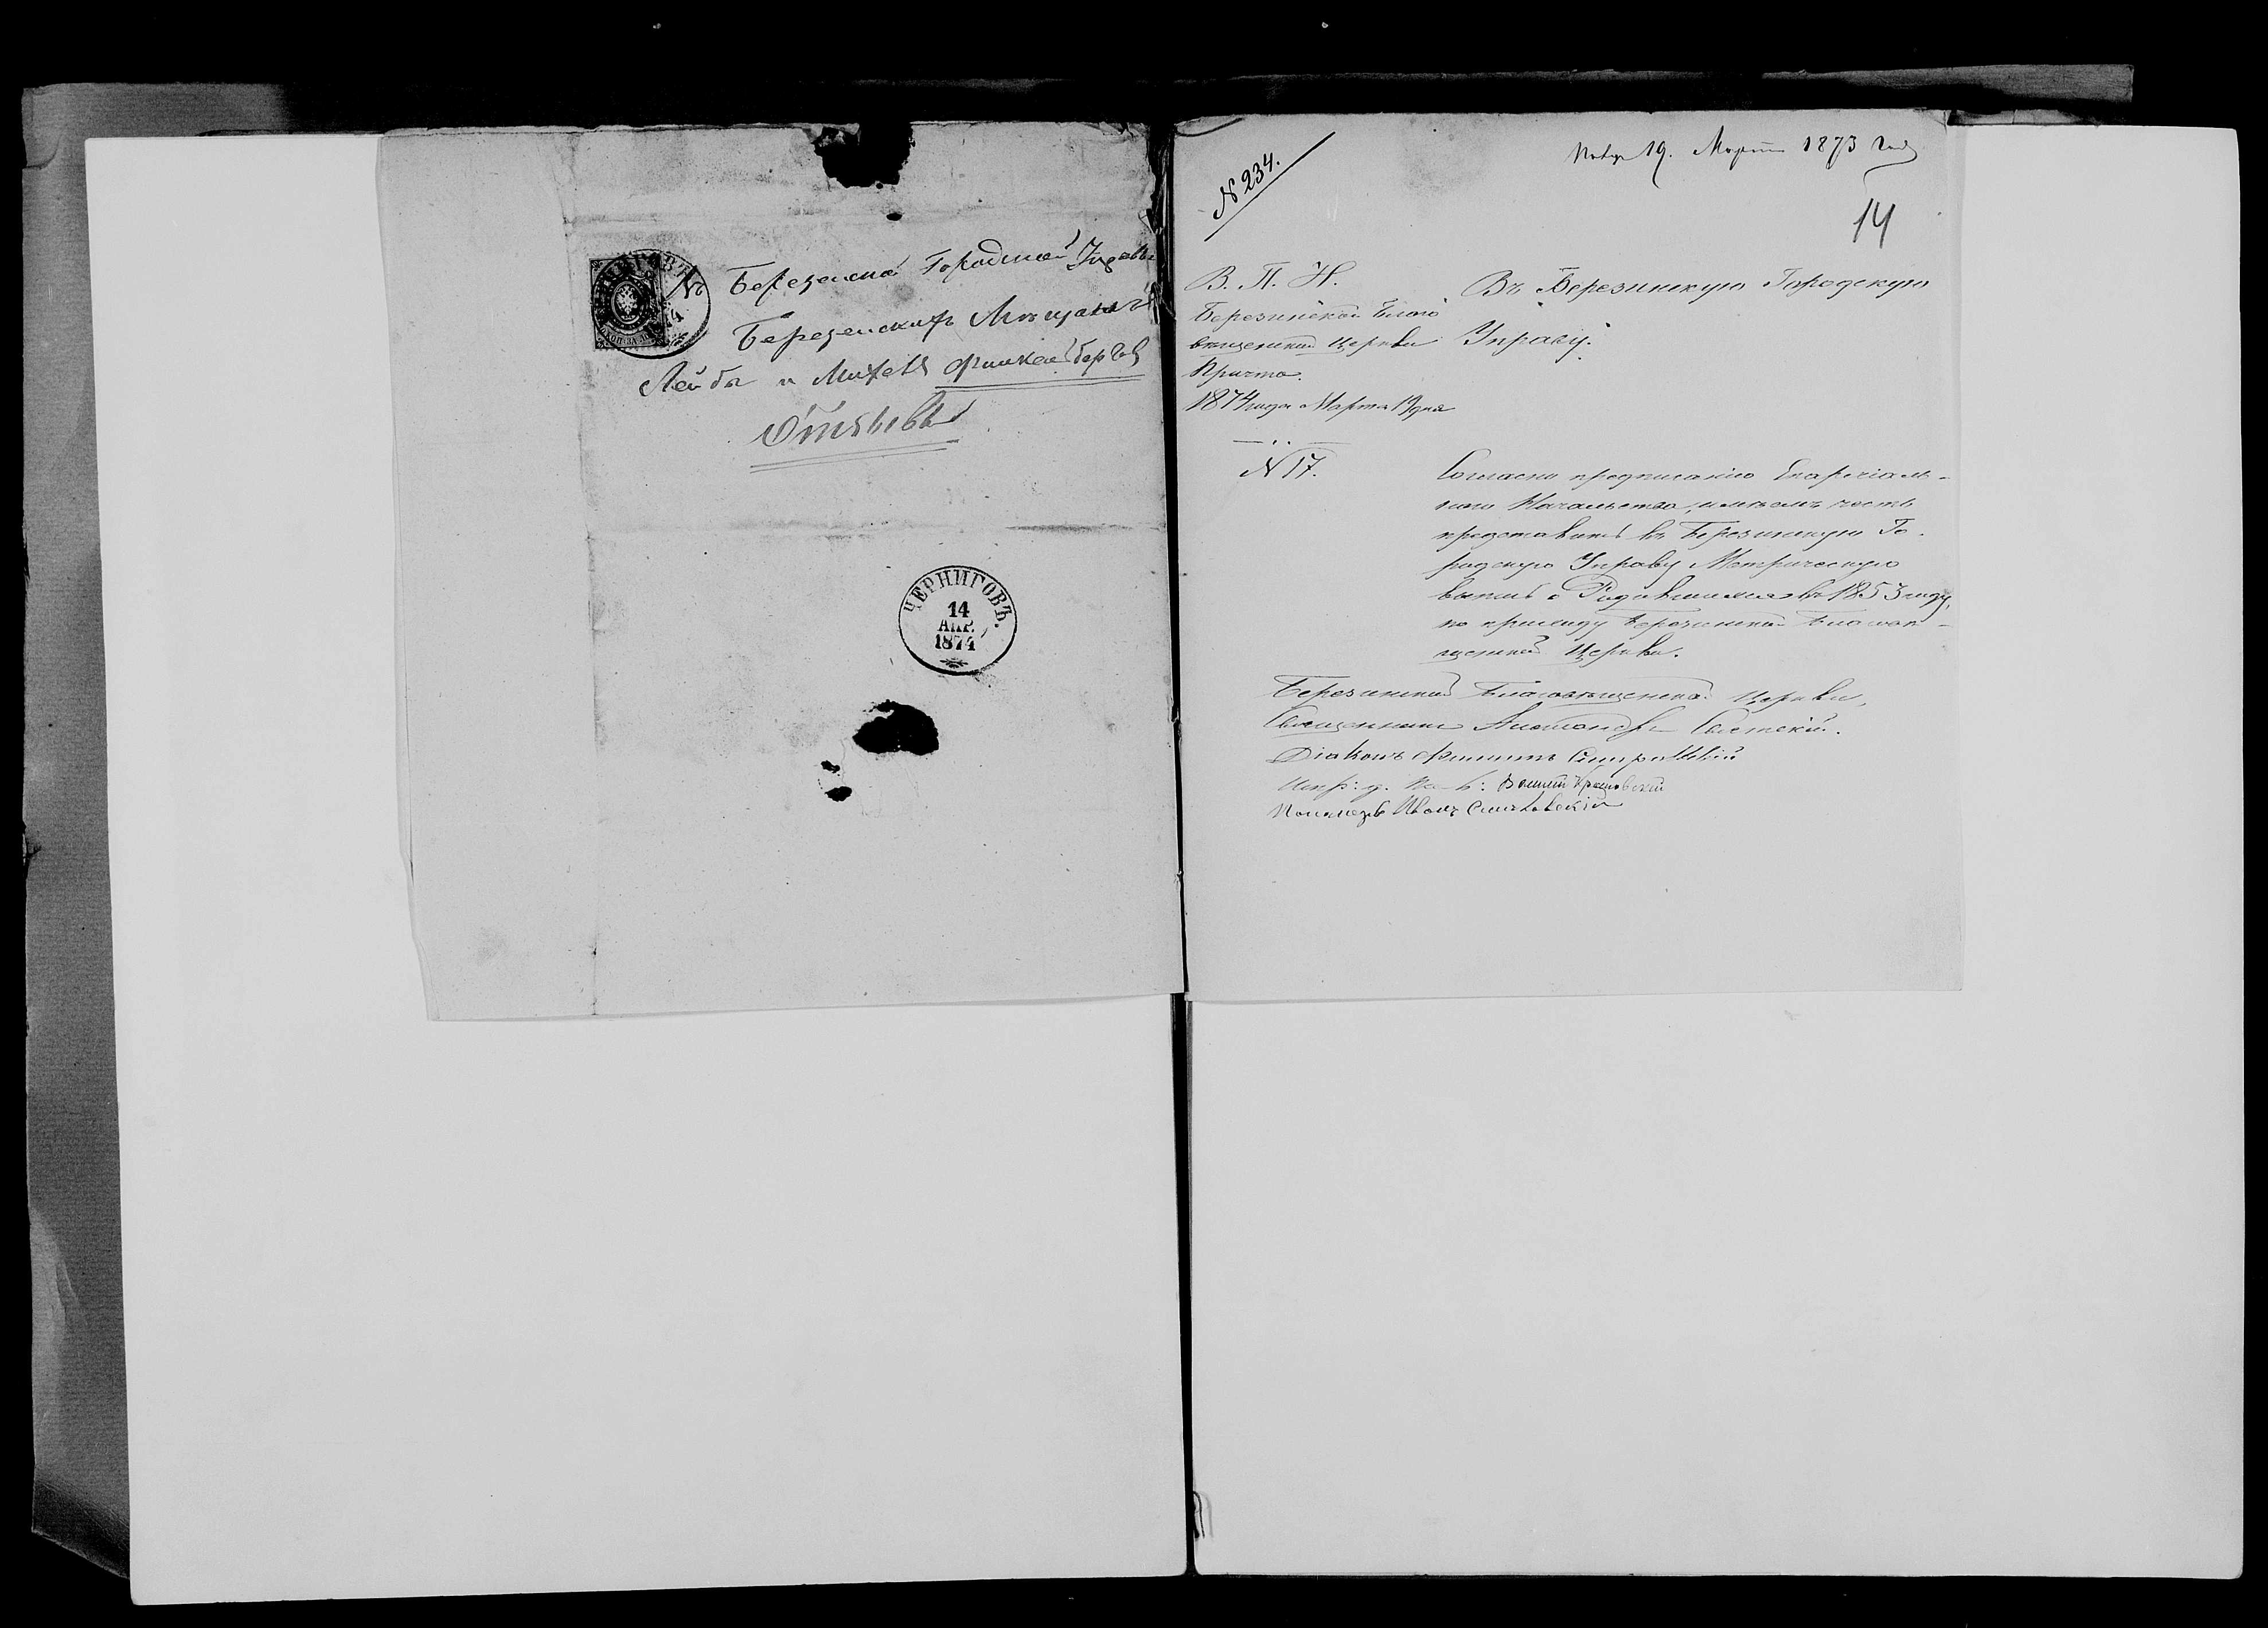 Въ Березенской Городской Управы
Березенскихъ Мѣщанъ
Лейбы и Михеля Финкельберговъ
Отзывы
ЧЕРНИГОВЪ.
14
АПР.
1874
N 234.
Марта 1873 года
14
В. П. И.
Березинской Благо
вѣщенской Церкви
Причта.
1874 года Марта 19 дня
N 17.
Въ Березинскую Городскую
Управу.
Согласно предписанію Епархіаль-
наго Начальства, имѣемъ честь
представить въ Березинскую Го-
родскую Управу Метрическую
выпись о Родившихся въ 1853 году,
по приходу Березинской Благовѣ-
щенской Церкви.
Березинской Благовѣщенской Церкви,
Священникъ
Діаконъ Филиппъ
Пономарь Иванъ